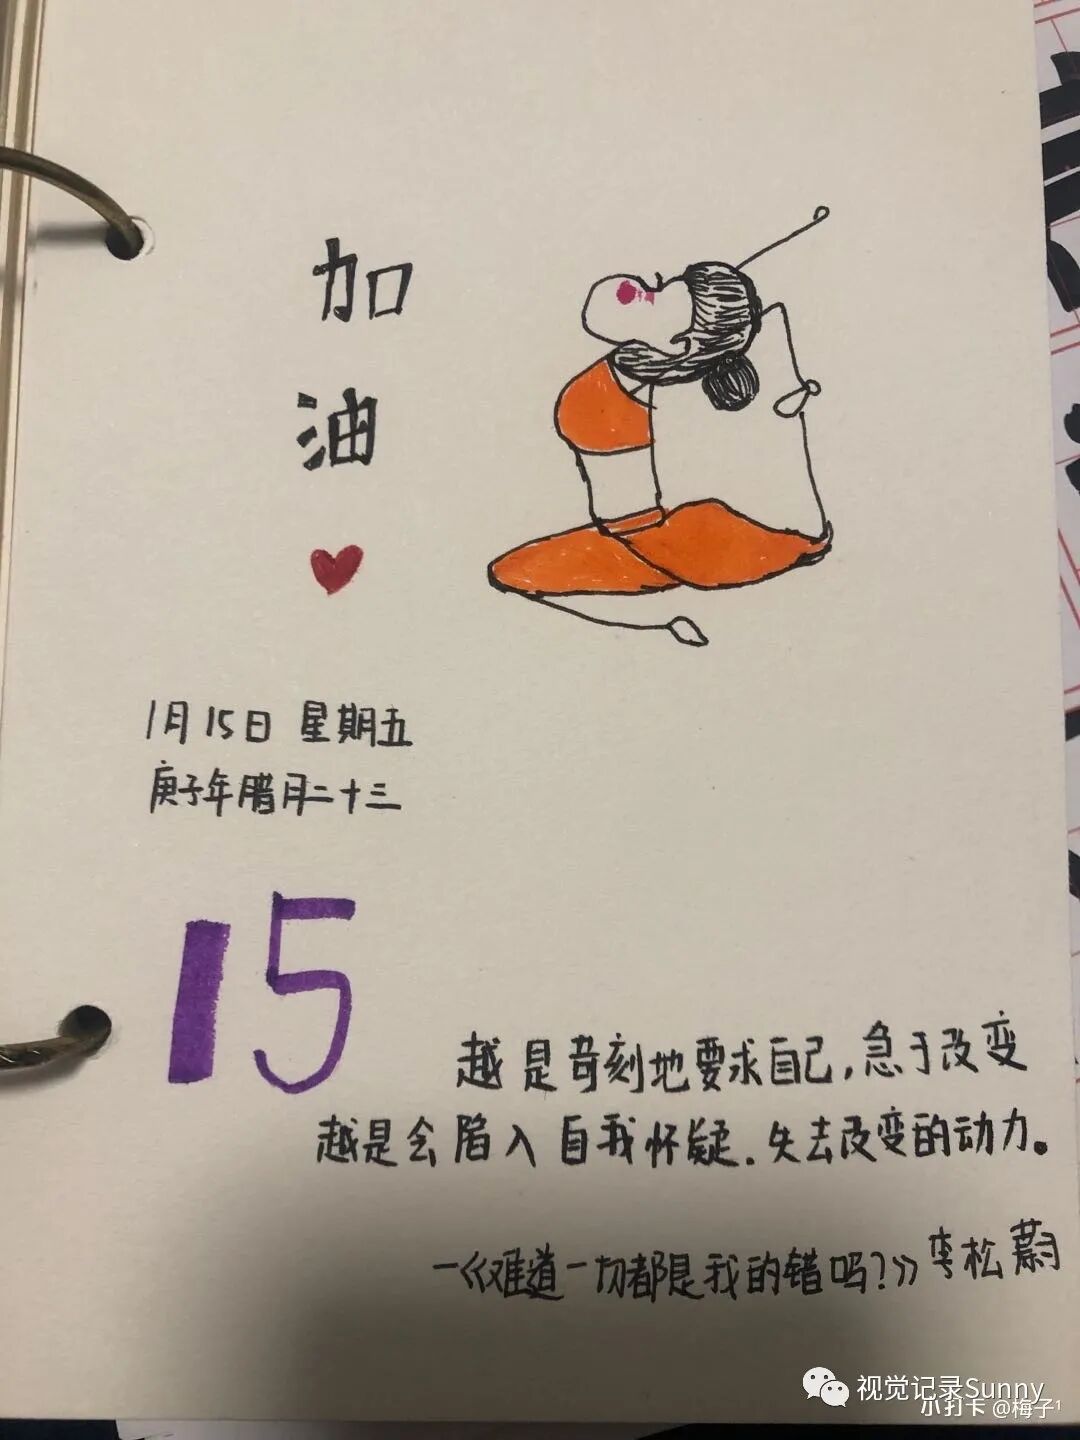 加
油
1月15日 星期五
庚子年腊月二十三
15
越是苛刻地要求自己,急于改变
越是会陷入自我怀疑.失去改变的动力。
—《难道一切都是我的错吗?》李松蔚
视觉记录Sunny
小打卡 @梅子¹